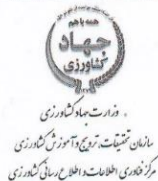 همه با هم
جهاد
کشاورزی
وزارت جهاد کشاورزی
سازمان تحقیقات، ترویج و آموزش کشاورزی
مرکز فناوری اطلاعات و اطلاع رسانی کشاورزی